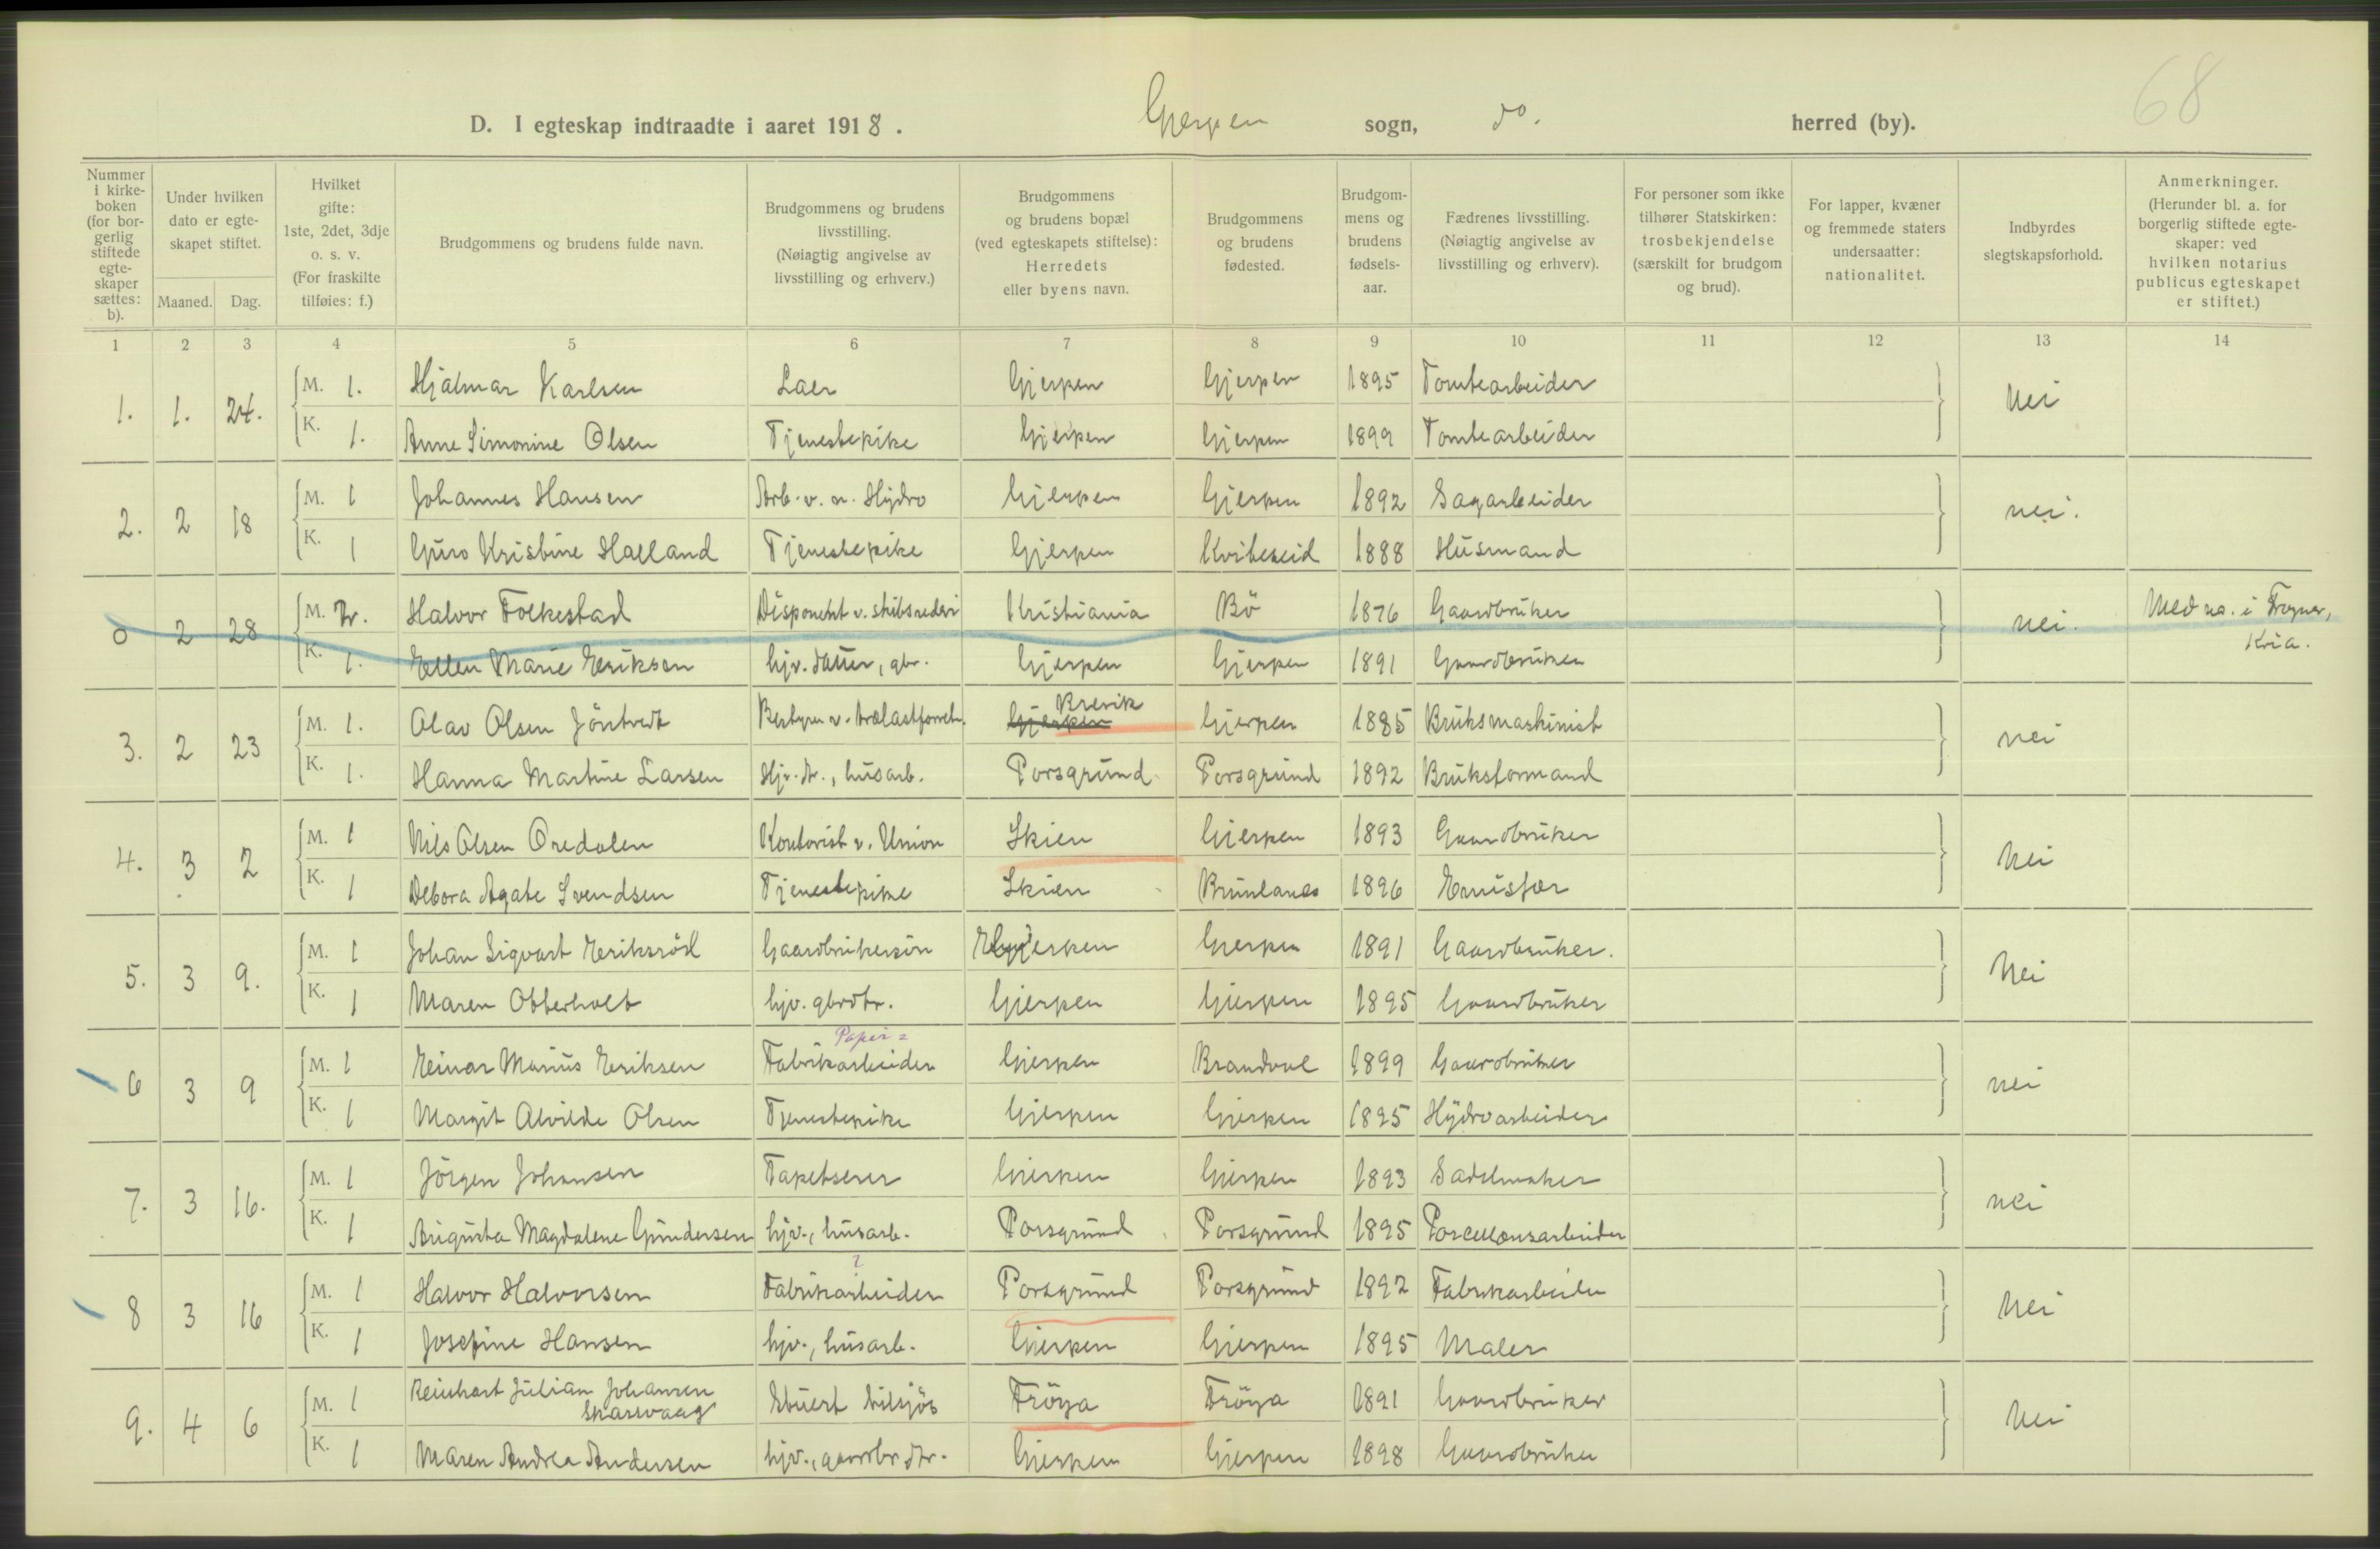 68
D. I egteskap indtraadte i aaret 1918. Gjerpen sogn, do. herred (by).
Nummer i kirkeboken (for borgerlig stiftede egteskaper sættes: b).
Under hvilken dato er egteskapet stiftet.
Maaned. Dag.
Hvilket gifte: 1ste, 2det, 3dje o. s. v. (For fraskilte tilføies: f.)
Brudgommens og brudens fulde navn.
Brudgommens og brudens livsstilling. (Nøiagtig angivelse av livsstilling og erhverv.)
Brudgommens og brudens bopæl (ved egteskapets stiftelse): Herredets eller byens navn.
Brudgommens og brudens fødested.
Brudgommens og brudens fødselsaar.
Fædrenes livsstilling. (Nøiagtig angivelse av livsstilling og erhverv).
For personer som ikke tilhører Statskirken: trosbekjendelse (særskilt for brudgom og brud).
For lapper, kvæner og fremmede staters undersaatter: nationalitet.
Indbyrdes slegtskapsforhold.
Anmerkninger. (Herunder bl. a. for borgerlig stiftede egteskaper: ved hvilken notarius publicus egteskapet er stiftet.)
1 2 3 4 5 6 7 8 9 10 11 12 13 14
1. 1. 24. M. 1. Hjalmar Karlsen Laer Gjerpen Gjerpen 1895 Tomtearbeider Nei
K. 1. Anne Simonine Olsen Tjenestepike Gjerpen Gjerpen 1899 Tomtearbeider
2. 2 18 M. 1 Johannes Hansen Arb. v. n. Hydro Gjerpen Gjerpen 1892 Sagarbeider nei.
K. 1 Guro Kristine Haaland Tjenestepike Gjerpen Kviteseid 1888 Husmand
0 2 28 M. 2. Halvor Folkestad Disponent v. skibsrederi Kristiania Bö 1876 Gaardbruker nei. Med no. i Frogner,
Kria.
K. 1. Ellen Marie Eriksen hjv. datter, gbr. Gjerpen Gjerpen 1891 Gaardbruker
3. 2 23 M. 1. Olav Olsen Jöntvedt Bestyrer v. trælastforretn. Gjerpen Brevik Gjerpen 1885 Bruksmaskinist nei
K. 1. Hanna Martine Larsen Hjv. dtr., husarb. Porsgrund Porsgrund 1892 Bruksformand
4. 3 2 M. 1 Nils Olsen Oredalen Kontorist v. Union Skien Gjerpen 1893 Gaardbruker Nei
K. 1 Debora Agate Svendsen Tjenestepike Skien Brunlanes 1896 Emissær
5. 3 9. M. 1 Johan Sigvart Eriksröd Gaardbrukersön Gjerpen Gjerpen 1891 Gaardbruker. Nei
K. 1 Maren Otterholt hjv. gbrdtr. Gjerpen Gjerpen 1895 Gaardbruker
Papir=
6 3 9 M. 1 Einar Marius Eriksen Fabrikarbeider Gjerpen Brandval 1899 Gaardbruker nei
K. 1 Margit Alvilde Olsen Tjenestepike Gjerpen Gjerpen 1895 Hydroarbeider
7. 3 16. M. 1 Jörgen Johansen Tapetserer Gjerpen Gjerpen 1893 Sadelmaker nei
K. 1 Augusta Magdalene Gundersen hjv., husarb. Porsgrund Porsgrund 1895 Porcellænsarbeider
?
8 3 16 M. 1 Halvor Halvorsen Fabrikarbeider Porsgrund Porsgrund 1892 Fabrikarbeider Nei
K. 1 Josefine Hansen hjv., husarb. Gjerpen Gjerpen 1895 Maler
9. 4 6 M. 1 Reinhart Julian Johansen Skarsvaag Stuert tilsjös Fröya Fröya 1891 Gaardbruker Nei
K. 1 Maren Andrea Andersen hjv., gaardbr. dtr. Gjerpen Gjerpen 1898 Gaardbruker